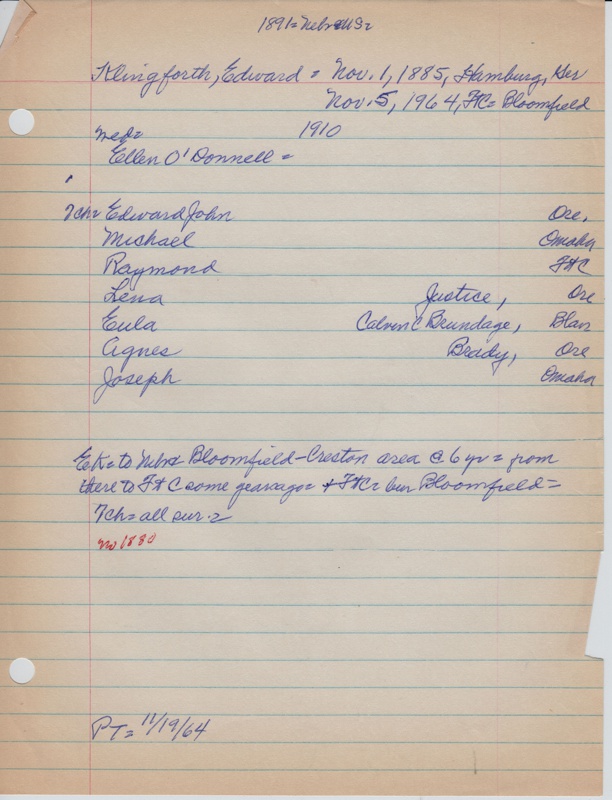 1891= Nebr & US=
Klingforth, Edward = Nov. 1, 1885, Hamburg, Ger
Nov. 5, 1964, Ft C= Bloomfield
med= 1910
Ellen O'Donnell =
7ch= Edward John Ore.
Michael Omaha
Raymond Ft C
Lena Justice, Ore
Eula Calvin C Brundage, Blair
Agnes Brady, Ore
Joseph Omaha
EK= to Nebr Bloomfield-Creston area @ 6 yr = from
there to Ft C some years ago = + Ft C= bur Bloomfield=
7ch= all sur.=
no 1880
PT= 11/19/64